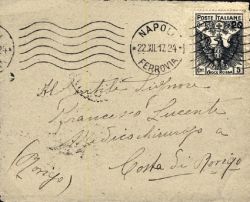 NAPOLI
*22.XII.17.24-
FERROVIA
POSTE ITALIANE
20
5
CROCE ROSSA
Al Gentile Signore
Francesco Lucente
Medicochirurgo a
Costa di Rovigo
(Rovigo)